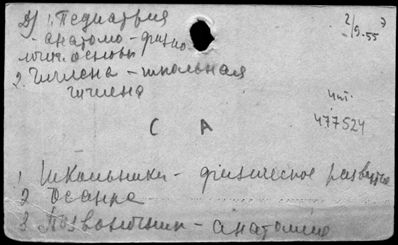 1. Педиатрия
- анатомо-физио
логич. основы
2. Гигиена - школьная
гигиена
2/9-55
чит.
477524
С А
1 Школьники - физическое развитие
2 Осанка
3 Позвоночник - анатомия